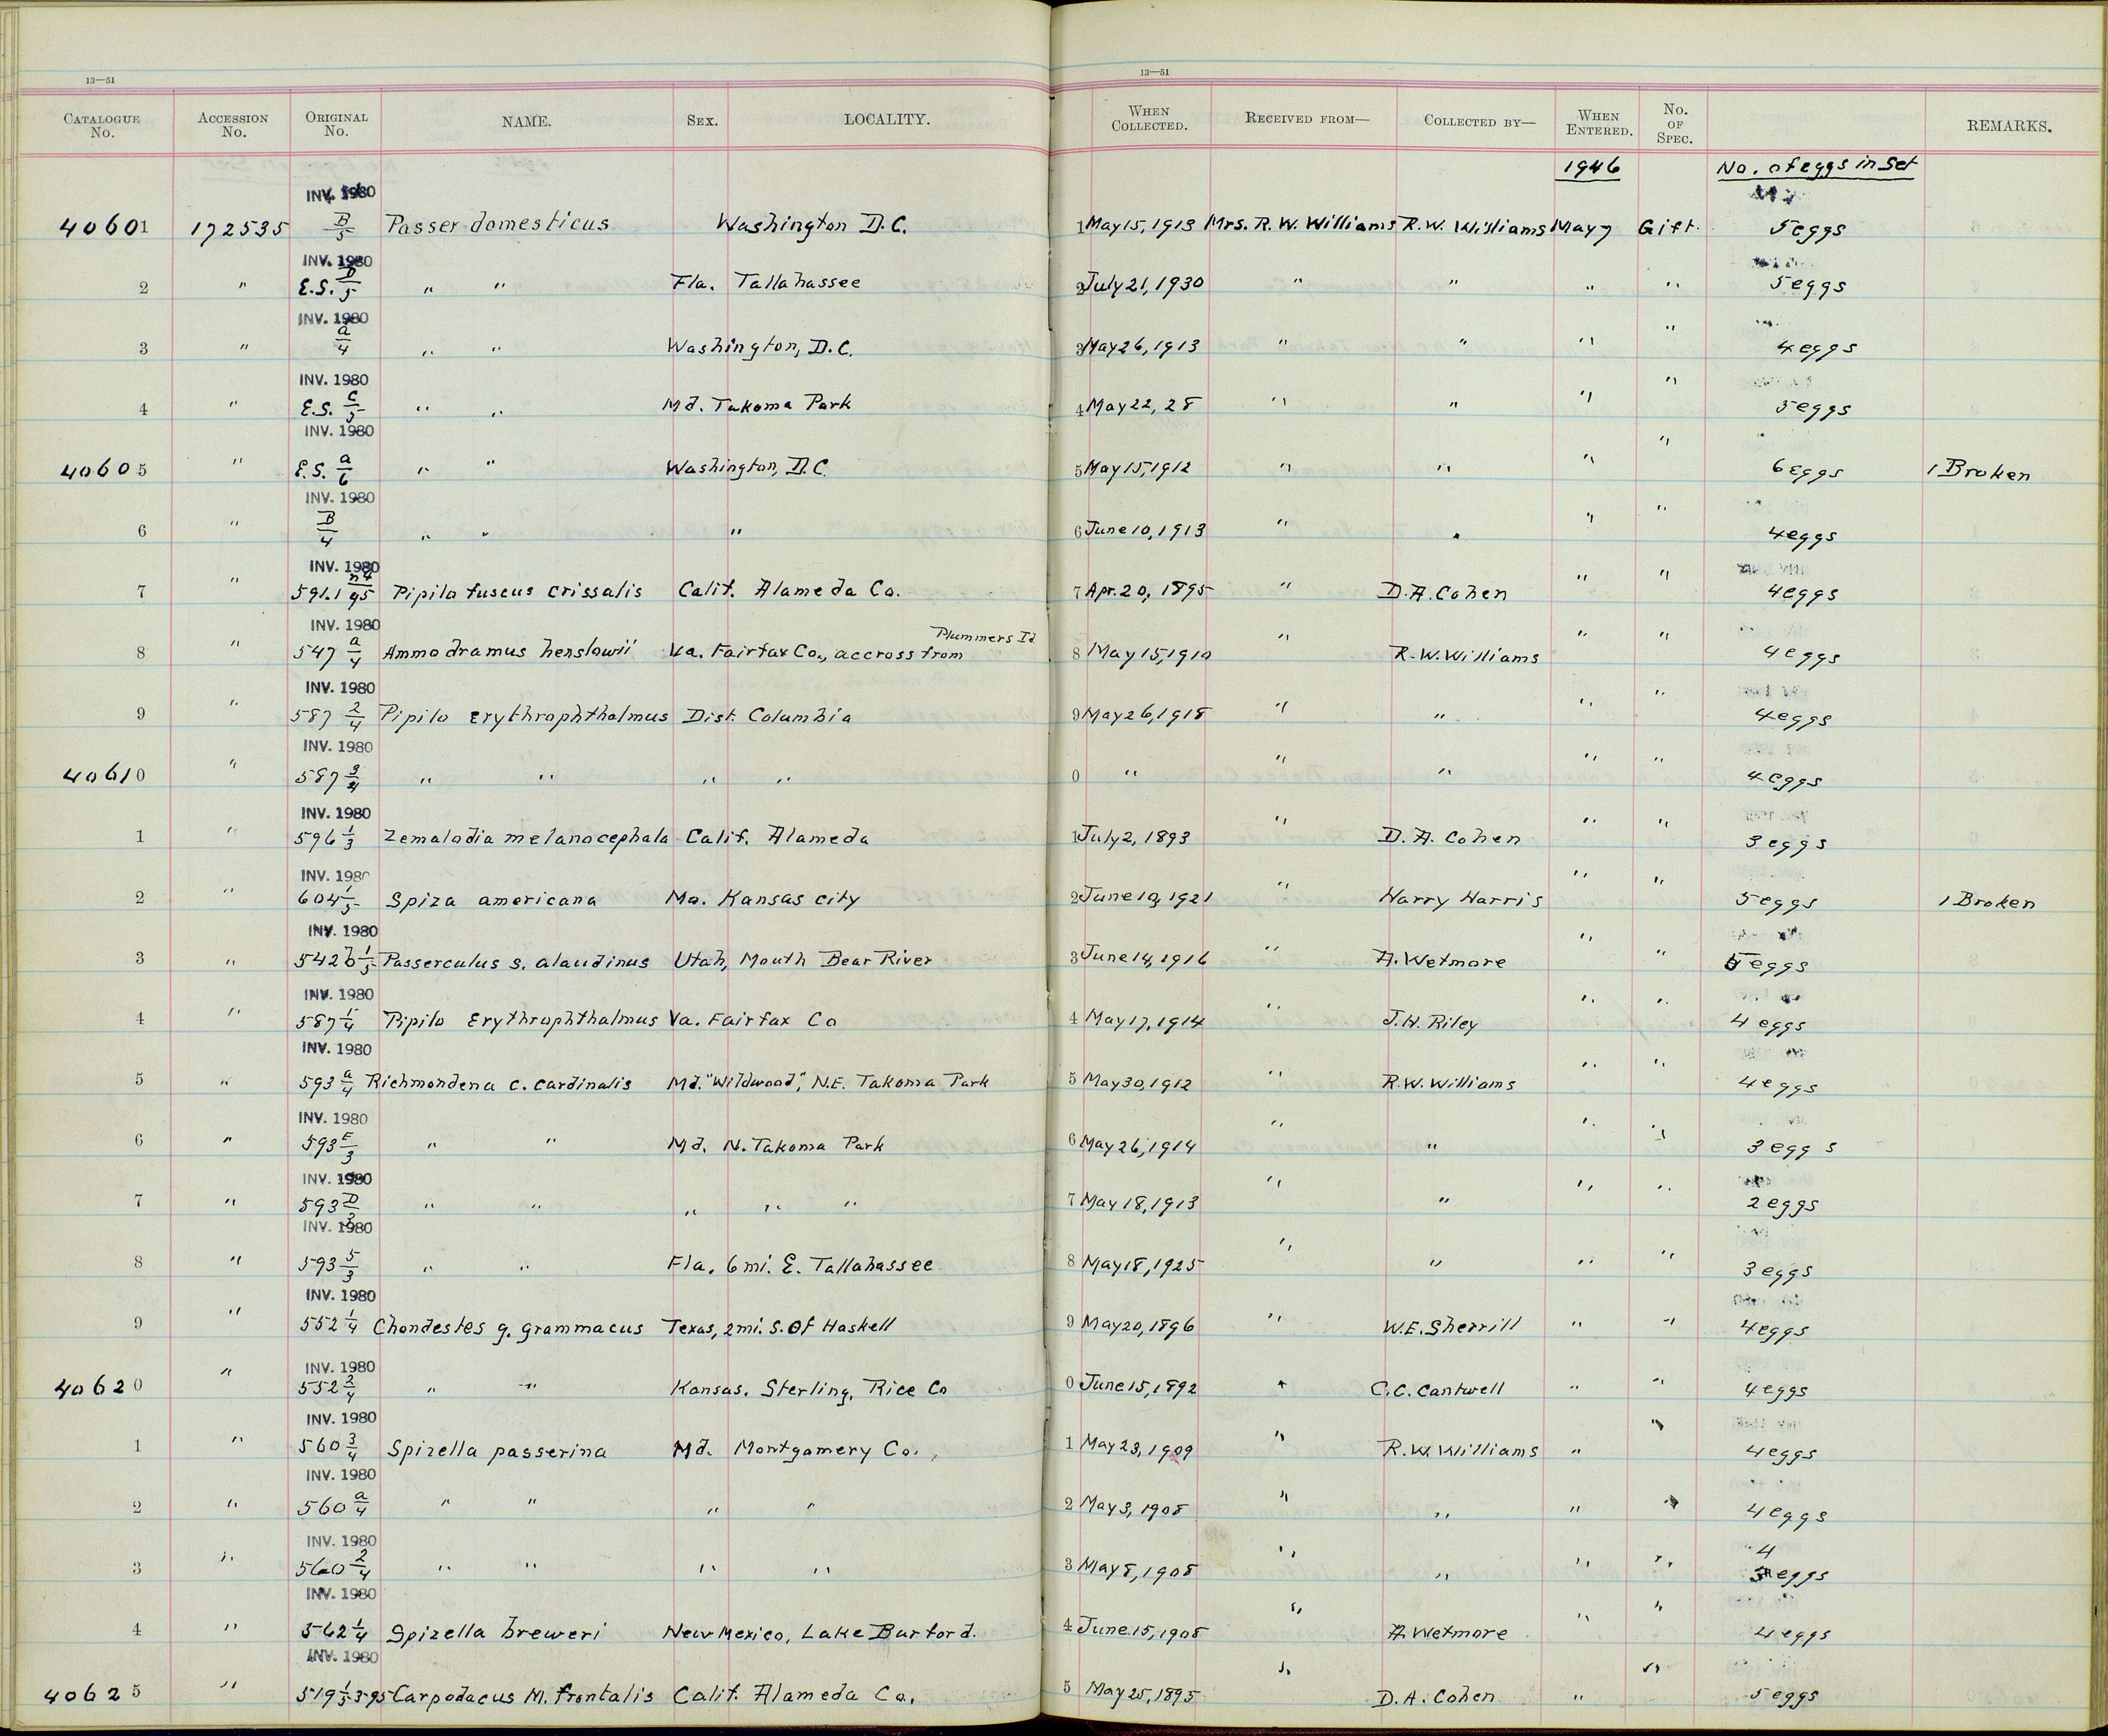 13—51 13—51
CATALOGUE No. ACCESSION No. ORIGINAL No. NAME. SEX. LOCALITY. WHEN COLLECTED. RECEIVED FROM— COLLECTED BY— WHEN ENTERED. No. OF SPEC. REMARKS.
1946 No. of eggs in Set
INV. 1980
40601 172535 B/5 Passer domesticus Washington D.C. 1 May 15, 1913 Mrs. R.W. Williams R.W. Williams May 7 Gift. 5 eggs
INV. 1980
2 " E.S. D/5 " " Fla. Tallahassee 2 July 21, 1930 " " " " 5 eggs
INV. 1980
3 " a/4 " " Washington, D.C. 3 May 26, 1913 " " " " 4 eggs
INV. 1980
4 " E.S. C/5 " " Md. Takoma Park 4 May 22, 28 " " " " 5 eggs
INV. 1980
40605 " E.S. a/6 " " Washington, D.C. 5 May 15, 1912 " " " " 6 eggs 1 Broken
INV. 1980
6 " B/4 " " " 6 June 10, 1913 " " " " 4 eggs
INV. 1980
7 " 591.1 n4/95 Pipilo fuscus crissalis Calif. Alameda Co. 7 Apr. 20, 1895 " D.A. Cohen " " 4 eggs
INV. 1980
Plummers Id
8 " 547 a/4 Ammodramus henslowii Va. Fairfax Co., accross from 8 May 15, 1910 " R.W. Williams " " 4 eggs
INV. 1980
9 " 587 2/4 Pipilo erythrophthalmus Dist. Columbia 9 May 26, 1918 " " " " 4 eggs
INV. 1980
40610 " 587 3/4 " " " " 0 " " " " " 4 eggs
INV. 1980
1 " 596 1/3 Zemalodia melanocephala Calif. Alameda 1 July 2, 1893 " D.A. Cohen " " 3 eggs
INV. 1980
2 " 604 1/5 Spiza americana Mo. Kansas city 2 June 19, 1921 " Harry Harris " " 5 eggs 1 Broken
INV. 1980
3 " 542 b 1/5 Passerculus s. alaudinus Utah, Mouth Bear River 3 June 14, 1916 " A. Wetmore " " 5 eggs
INV. 1980
4 " 587 1/4 Pipilo Erythrophthalmus Va. Fairfax Co 4 May 17, 1914 " J.H. Riley " " 4 eggs
INV. 1980
5 " 593 a/4 Richmondena c. cardinalis Md. "Wildwood", N.E. Takoma Park 5 May 30, 1912 " R.W. Williams " " 4 eggs
INV. 1980
6 " 593 E/3 " " Md. N. Takoma Park 6 May 26, 1914 " " " " 3 eggs
INV. 1980
7 " 593 D/2 " " " " " 7 May 18, 1913 " " " " 2 eggs
INV. 1980
8 " 593 5/3 " " Fla. 6 mi. E. Tallahassee 8 May 18, 1925 " " " " 3 eggs
INV. 1980
9 " 552 1/4 Chondestes g. grammacus Texas, 2 mi. S. Of Haskell 9 May 20, 1896 " W.E. Sherrill " " 4 eggs
INV. 1980
40620 " 552 2/4 " " Kansas. Sterling, Rice Co 0 June 15, 1892 " C.C. Cantwell " " 4 eggs
INV. 1980
1 " 560 3/4 Spizella passerina Md. Montgomery Co. 1 May 23, 1909 " R.W. Williams " " 4 eggs
INV. 1980
2 " 560 a/4 " " " " 2 May 3, 1908 " " " " 4 eggs
INV. 1980
4
3 " 560 2/4 " " " " 3 May 8, 1908 " " " " eggs
INV. 1980
4 " 562 1/4 Spizella breweri New Mexico, Lake Burford. 4 June 15, 1908 " A. Wetmore " " 4 eggs
INV. 1980
40625 " 519 1/5 3-95 Carpodacus M. frontalis Calif. Alameda Co. 5 May 25, 1895 " D.A. Cohen " " 5 eggs